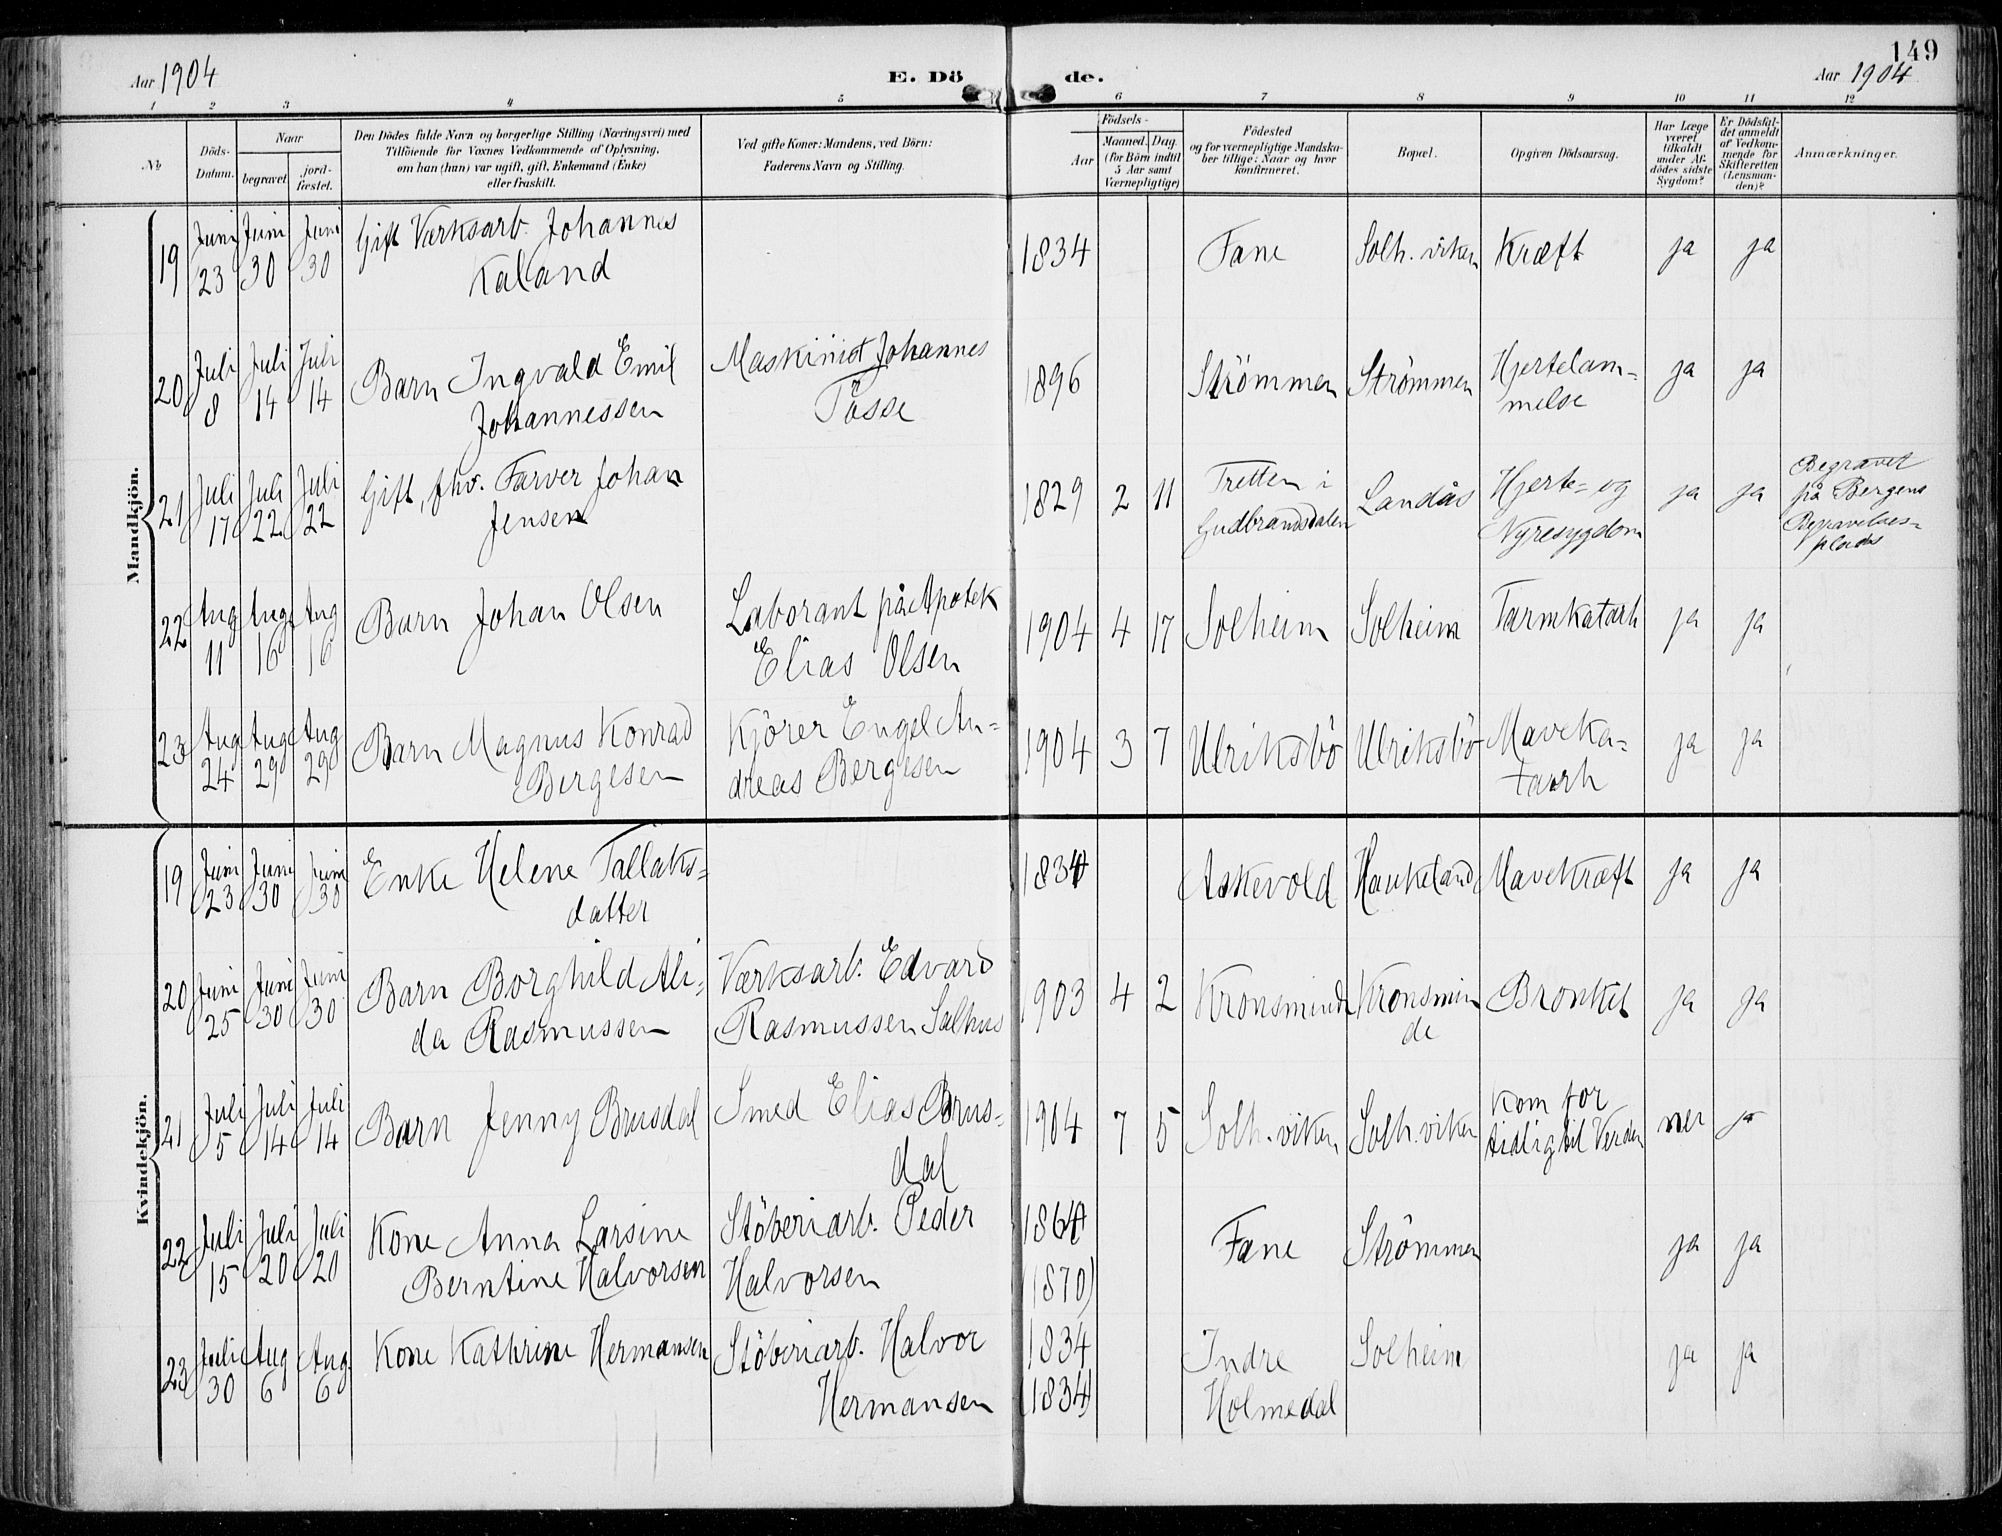 149
Aar 1904
E. Dö
de.
Aar 1904
1 2 3 4 5 6 7 8 9 10 11 12
No
Döds-
Datum.
Naar
begravet.
jord-
fæstet.
Den Dödes fulde Navn og borgerlige Stilling (Næringsvei) med
Tilföiende for Voxnes Vedkommende af Oplysning,
om han (hun) var ugift, gift, Enkemand (Enke)
eller fraskilt.
Ved gifte Koner: Mandens, ved Börn:
Faderens Navn og Stilling.
Födsels-
Aar
Maaned. Dag.
(for Börn indtil
5 Aar samt
Værnepligtige)
Födested
og for værnepligtige Mandska-
ber tillige: Naar og hvor
konfirmeret.
Bopæl.
Opgiven Dödsaarsag.
Har Læge
været
tilkaldt
under Af-
dödes sidste
Sygdom?
Er Dödsfal-
det anmeldt
af Vedkom-
mende for
Skifteretten
(Lensman-
den)?
Anmærkninger.
Mandkjön.
19 Juni 23 Juni 30 Juni 30 Gift Værksarb. Johannes
Kaland
1834 Fane Solh. viken Kræft ja ja
20 Juli 8 Juli 14 Juli 14 Barn Ingvald Emil
Johannessen
Maskinist Johannes
Tösse
1896 Strömmen Strömmen Hjertelam-
melse
ja ja
21 Juli 17 Juli 22 Juli 22 Gift, fhv. Farver Johan
Jensen
1829 2 11 Tretten i
Gudbrandsdalen
Landås Hjerte- og
Nyresygdom
ja ja
Begravet
på Bergens
Begravelses-
plads
22 Aug 11 Aug 16 Aug 16 Barn Johan Olsen
Laborant på Apotek
Elias Olsen
1904 4 17 Solheim Solheim Tarmkatarh ja ja
23 Aug 24 Aug 29 Aug 29 Barn Magnus Konrad
Bergesen
Kjörer Engel An-
dreas Bergesen
1904 3 7 Ulriksbö Ulriksbö Maveka-
tarrh
ja ja
Kvindekjön.
19 Juni 23 Juni 30 Juni 30 Enke Helene Tallaks-
datter
1834 Askevold Haukeland Mavekræft ja ja
20 Juni 25 Juni 30 Juni 30 Barn Borghild Ali-
da Rasmussen
Værksarb. Edvard
Rasmussen Salhus
1903 4 2 Kronsminde Kronsmin
de
Bronkit ja ja
21 Juli 5 Juli 14 Juli 14 Barn Jenny Brusdal
Smed Elias Brus-
dal
1904 7 5 Solh. viken Solh. viken Kom for
tidlig til Verden
nei ja
22 Juli 15 Juli 20 Juli 20 Kone Anna Larsine
Berntine Halvorsen
Stöberiarb. Peder
Halvorsen
1864
(1870)
Fane Strömmen ja ja
23 Juli 30 Aug 6 Aug. 6 Kone Kathrine Hermansen
Stöberiarb. Halvor
Hermansen
1834
(1834)
Indre
Holmedal
Solheim ja ja